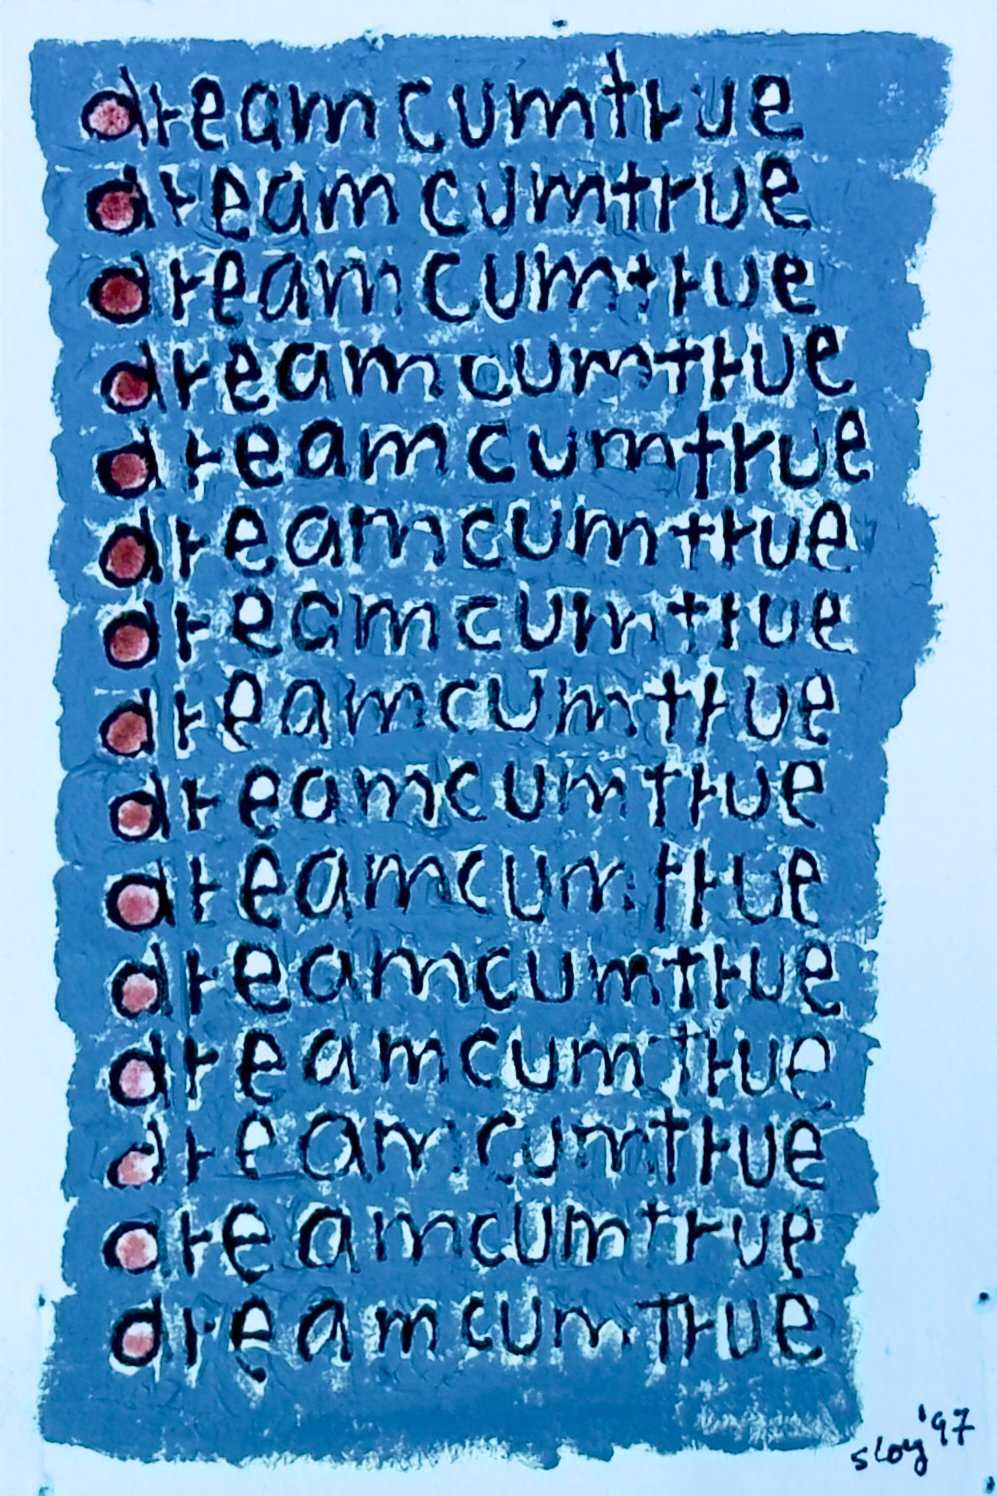 dream cumtrue
dream cumtrue
dream cumtrue
dreamcumtrue
dream cumtrue
dreamcumtrue
dream cumtrue
dreamcumtrue
dreamcumtrue
dreamcumtrue
dreamcumtrue
dreamcumtrue
dreamcumtrue
dreamcumtrue
dreamcumtrue
sloy '97